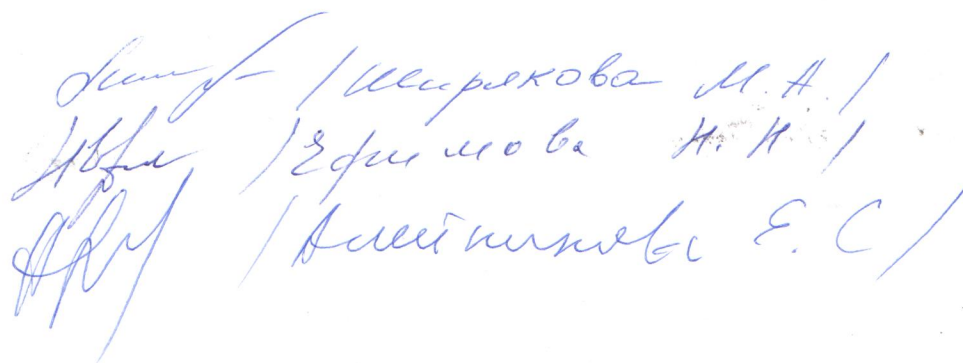 /Ширякова М.А./
/Ефимова Н.Н./
/Алейникова Е.С/